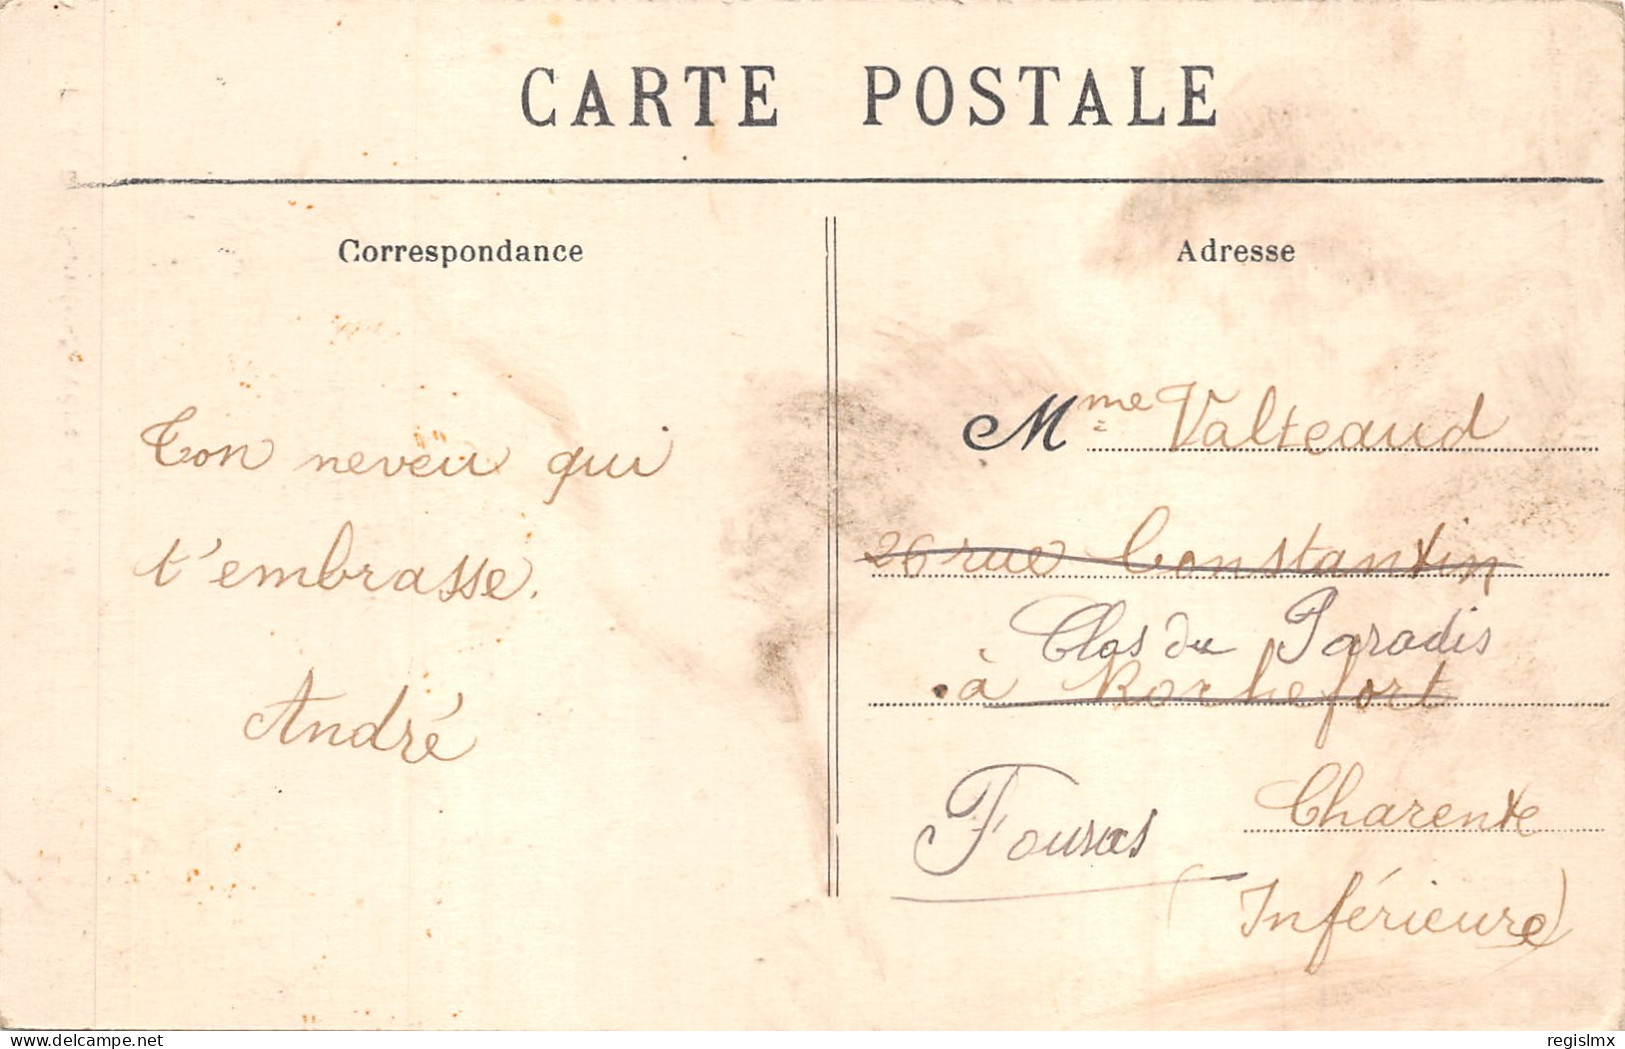 CARTE POSTALE
Correspondance
Ton neveu qui
t'embrasse.
André
Adresse
Mme Valteaud
26 rue Constantin
Clos du Paradis
à Rochefort
Fouras
Charente
(Inférieure)
delcampe.net
regislmx